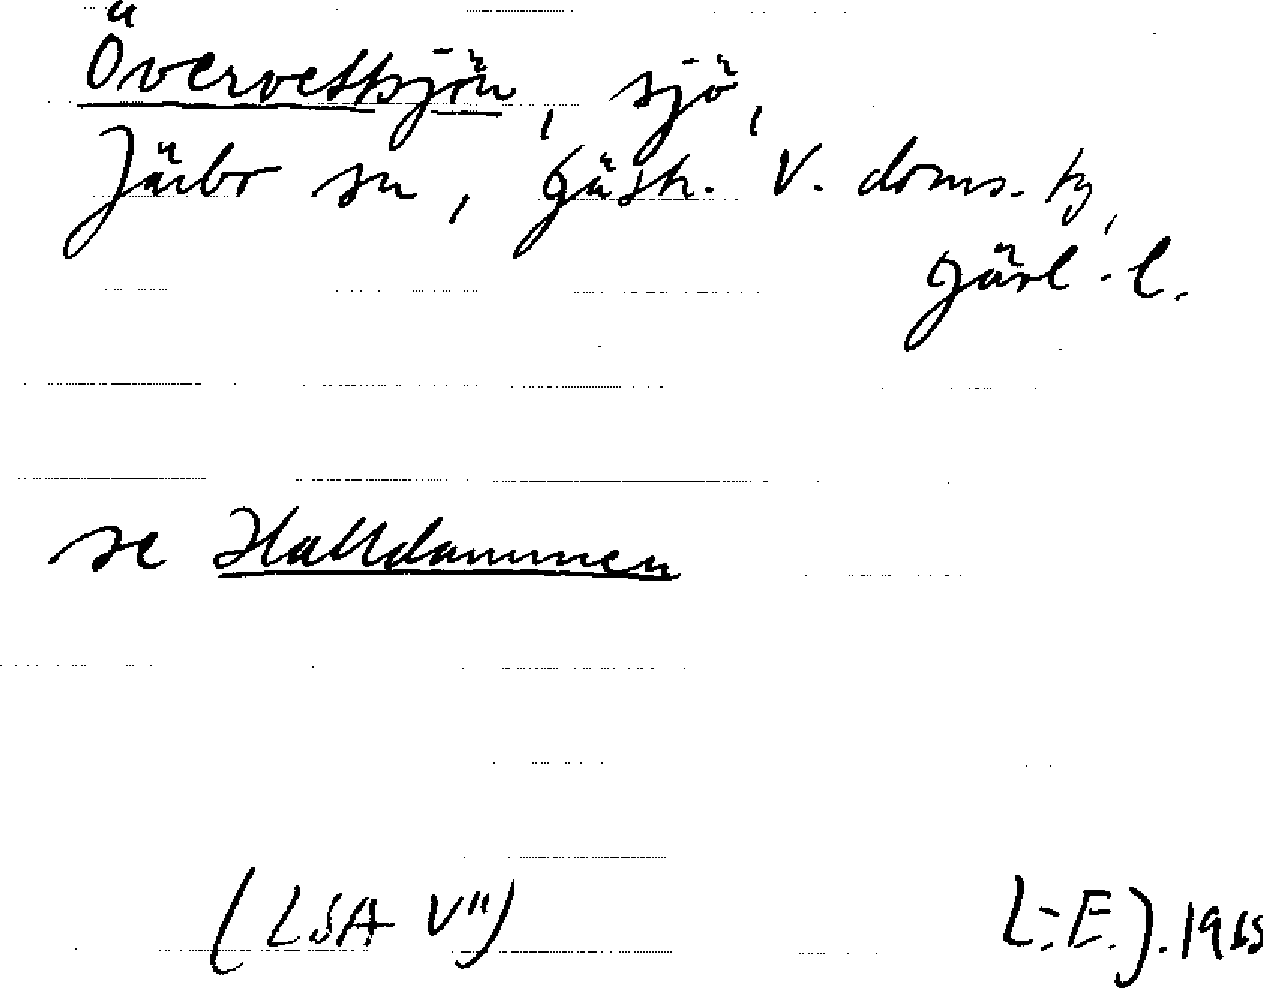 Övervetkjön, sjö,
Järbo sn, Gästr. V. doms. ty,
Gävl. l.
se Halldammen
(LSA V")
L:E.J. 1965